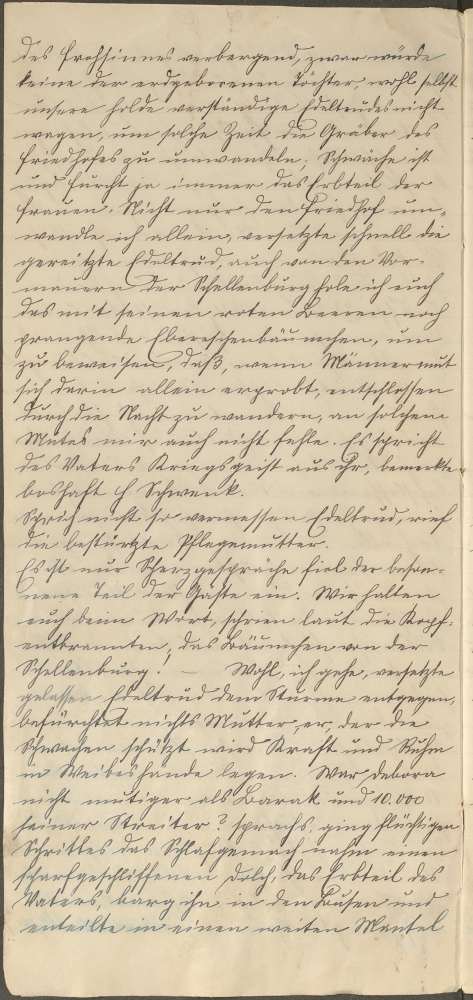 des Frohsinnes verbergend, zwar würde
keine der erdgeborenen Töchter, wohl selbst
unsere holde verständige Edeltrudes nicht
wagen, um solche Zeit die Gräber des
Friedhofes zu umwandeln. Schwäche ist
und Furcht ja immer das Erbteil der
Frauen. Nicht nur den Friedhof um-
wandle ich allein, versetzte schnell die
gereitzte Edeltrud, auch von den Vor-
mauern der Schellenburg hole ich euch
das mit seinen roten Beeren noch
prangende Ebereschenbäumchen, um
zu beweisen, daß, wenn Männermut
sich darin allein erprobt, entschlossen
durch die Nacht zu wandern, an solchem
Mutes mir auch nicht fehle. Es spricht
des Vaters Kriegsgeist aus ihr, bemerkte
boshaft H Schwenk.
Sprich nicht so vermessen Edeltrud, rief
die bestürtzte Pflegemutter.
Es ist nur Scherzgespräche fiel der beson-
nene Teil der Gäste ein. Wir halten
euch beim Wort, schrien laut die Kopf-
entbrannten, das Bäumchen von der
Schellenburg! – Wohl, ich gehe, versetzte
gelassen Edeltrud dem Sturme entgegen,
befürchtet nichts Mutter, er, der die
Schwachen schützt wird Kraft und Ruhm
in Weibeshande legen. War Debora
nicht mutiger als Barak und 10.000
seiner Streiter? sprachs, ging flüchtigen
Schrittes das Schlafgemach nahm einen
scharfgeschliffenen Dolch, das Erbteil des
Vaters, barg ihn in den Busen und
enteilte in einen weiten Mantel